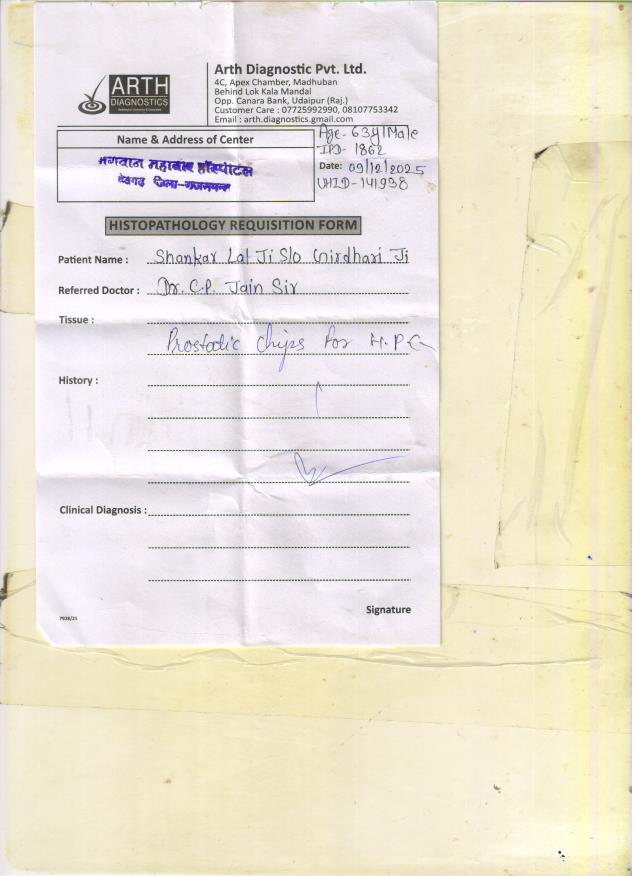 ARTH
DIAGNOSTICS
Arth Diagnostic Pvt. Ltd.
4C, Apex Chamber, Madhuban
Behind Lok Kala Mandal
Opp. Canara Bank, Udaipur (Raj.)
Customer Care : 07725992990, 08107753342
Email : arth.diagnostics.gmail.com
Name & Address of Center
भगवान महावीर हॉस्पीटल
देवगढ़ जिला-राजसमन्द
Age- 63y/Male
IPD- 1862
Date: 09/12/2025
UHID-141938
HISTOPATHOLOGY REQUISITION FORM
Patient Name : Shankar Lal Ji S/o Girdhari Ji
Referred Doctor : Dr. C.P. Jain Sir
Tissue :
Prostatic Chips for H.P.E
History :
Clinical Diagnosis :
Signature
7938/21